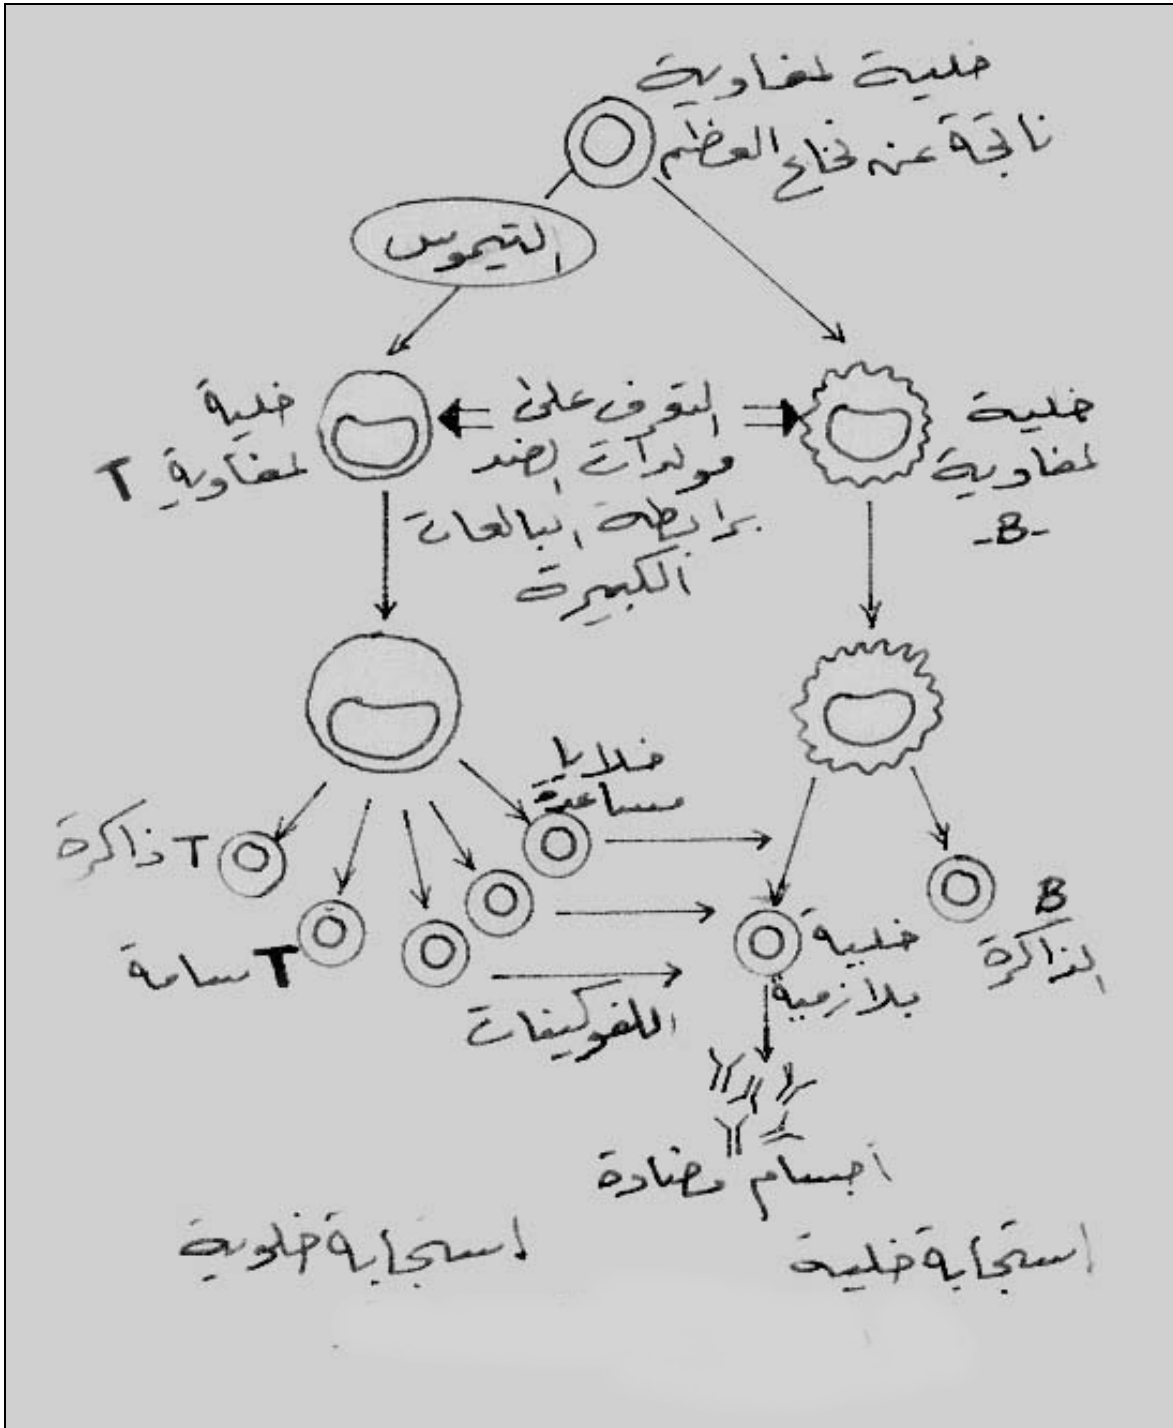 خلية لمفاوية
ناتجة عن نخاع العظم
التيموس
خلية
لمفاوية T
التعرف على
مولدات الضد
برابطة البالعات
الكبيرة
خلية
لمفاوية
-B-
خلايا
مساعدة
T ذاكرة
T سامة
اللمفوكينات
خلية
بلازمية
B
الذاكرة
أجسام مضادة
استجابة خلوية
استجابة خلية